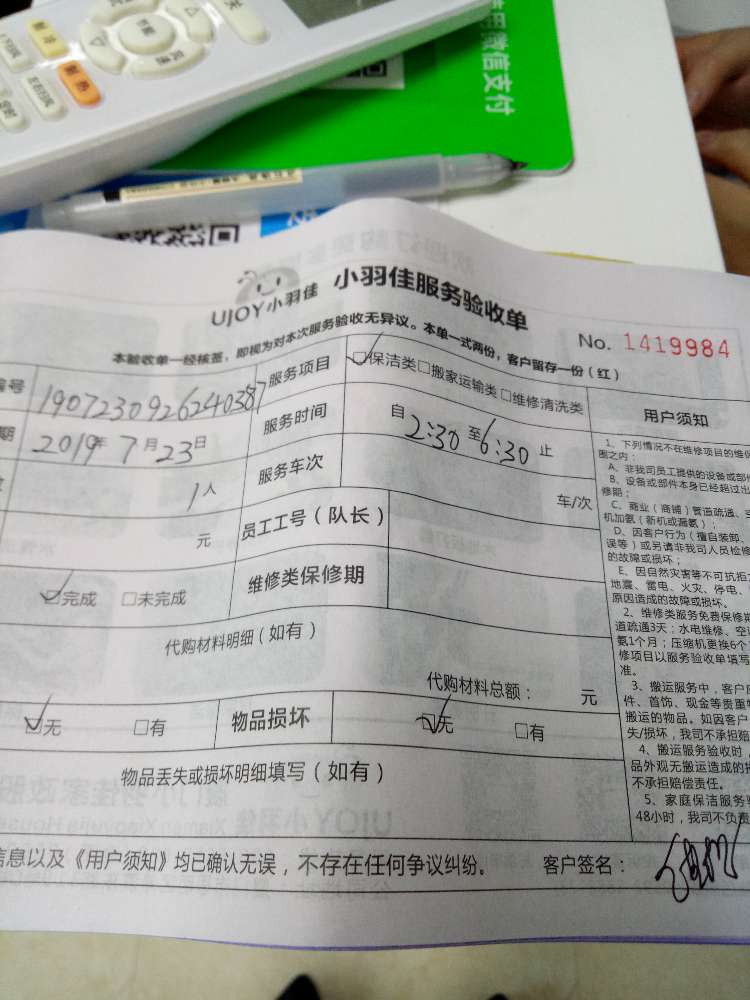 关
节能
风速
制冷
制热
使用微信支付
UJOY小羽佳 小羽佳服务验收单
No. 1419984
本验收单一经核签，即视为对本次服务验收无异议。本单一式两份，客户留存一份（红）
编号 1907230926240387 服务项目 ☑保洁类□搬家运输类□维修清洗类
期 2019年7月23日 服务时间 自2:30至6:30止
1人 服务车次 车/次
元 员工工号（队长）
☑完成 □未完成 维修类保修期
代购材料明细（如有）
代购材料总额： 元
☑无 □有 物品损坏 ☑无 □有
物品丢失或损坏明细填写（如有）
信息以及《用户须知》均已确认无误，不存在任何争议纠纷。 客户签名：
用户须知
1、下列情况不在维修项目的维保
围之内：
A、非我司员工提供的设备或部件
B、设备或部件本身已经超过出
修期；
C、商业（商铺）管道疏通、空
机加氨（新机或漏氨）；
D、因客户行为（擅自装卸、
误等）或另请非我司人员检修
的故障或损坏；
E、因自然灾害等不可抗拒
地震、雷电、火灾、停电、
原因造成的故障或损坏。
2、维修类服务免费保修期
道疏通3天；水电维修、空
氨1个月；压缩机更换6个
修项目以服务验收单填写
准。
3、搬运服务中，客户
件、首饰、现金等贵重
搬运的物品。如因客户
失/损坏，我司不承担赔
4、搬运服务验收时，
品外观无搬运造成的
不承担赔偿责任。
5、家庭保洁服务
48小时，我司不负责